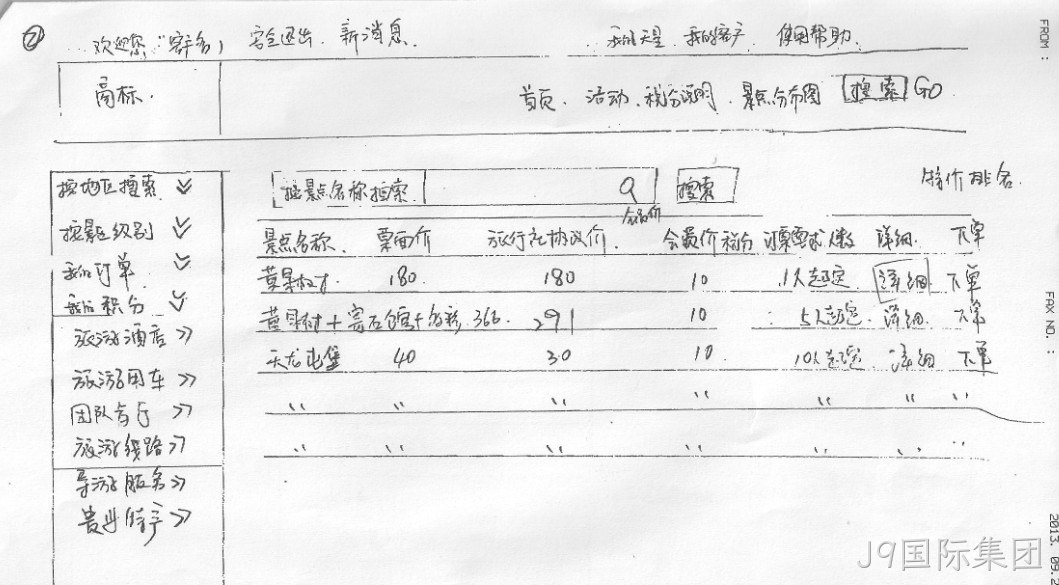 ② 欢迎您“客户名” 安全退出 新消息 我的客户 使用帮助
商标 首页 活动 积分说明 景点分布图 搜索 GO
按地区搜索
按景区级别
我的订单
我的积分
旅游酒店 >>
旅游用车 >>
团队音乐 >>
旅游线路 >>
导游服务 >>
贵州特产 >>
按景点名称搜索 Q 搜索 特价排名
会员价
景点名称 票面价 旅行社协议价 会员价 积分 订票要求人数 详细 下单
黄果树 180 180 10 1人起定 详细 下单
366 291 10 5人起定 详细 下单
天龙屯堡 40 30 10 10人起定 详细 下单
〃 〃 〃 〃 〃 〃 〃
〃 〃 〃 〃 〃 〃 〃
FROM :
FAX NO. :
2013. 09.
J9国际集团